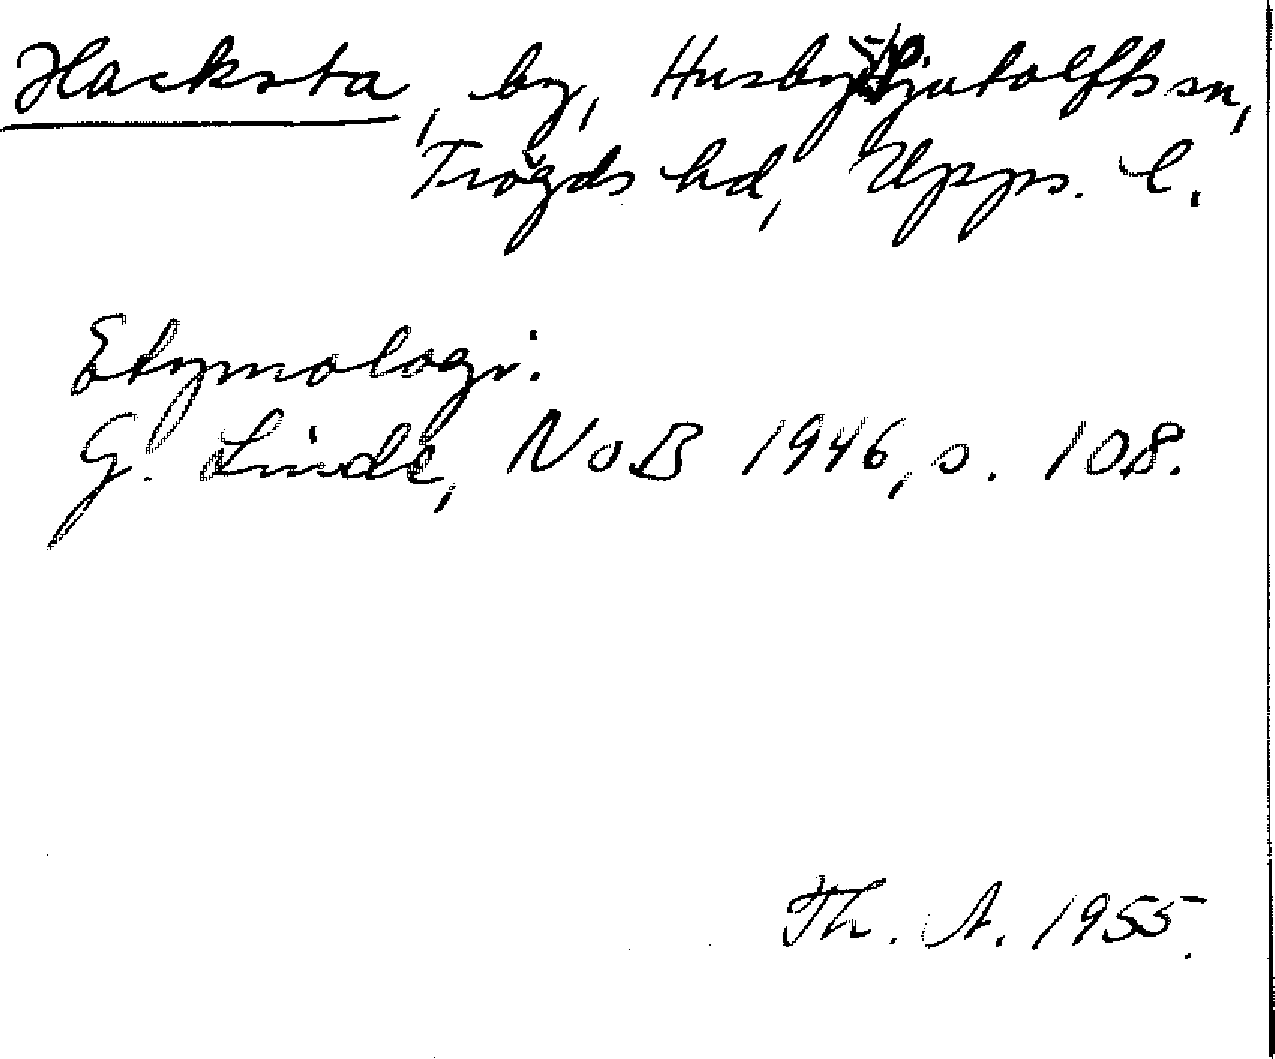 Hacksta, by, Husby-Sjutolfts sn,
Trögds hd, Upps. l.
Etymologi:
G. Linde, NoB 1946, s. 108.
Th. A. 1955.